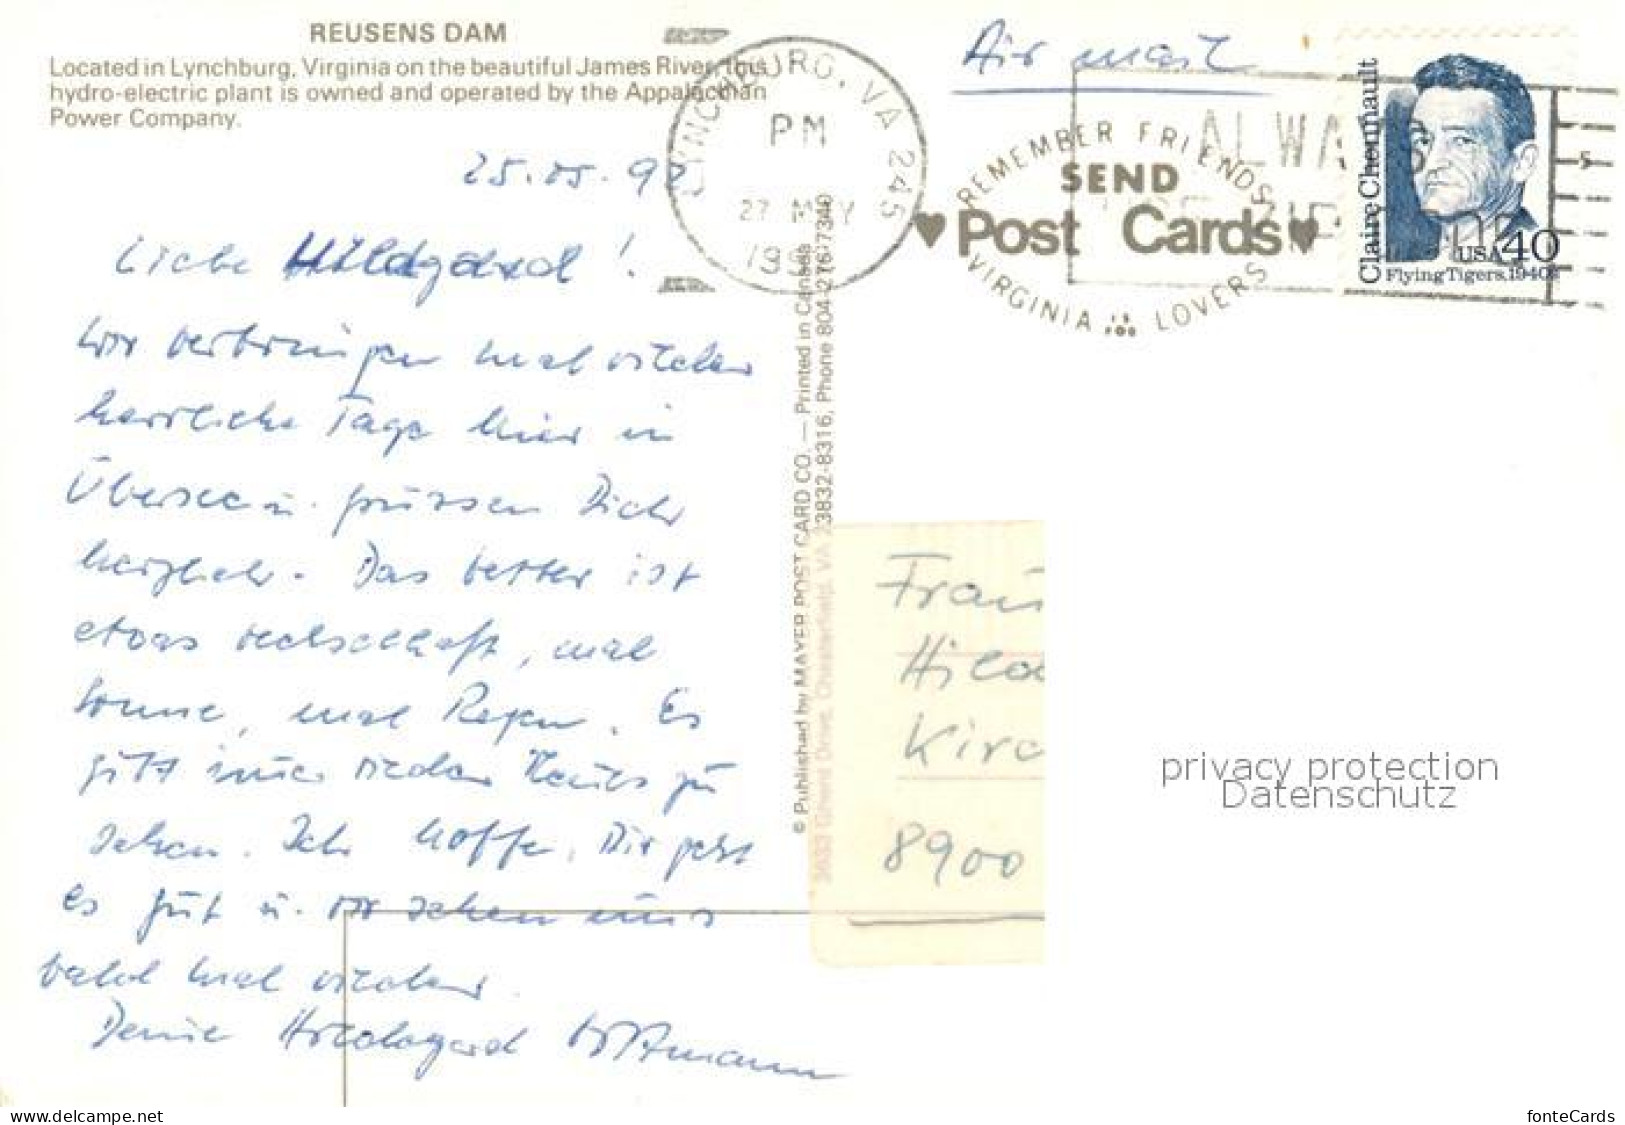 REUSENS DAM
Located in Lynchburg, Virginia on the beautiful James River, this
hydro-electric plant is owned and operated by the Appalachian
Power Company.
Air mail
LYNCHBURG, VA 245
PM
27 MAY
REMEMBER FRIENDS
SEND
♥Post Cards♥
VIRGINIA LOVERS
ALWAYS
Claire Chennault
USA 40
Flying Tigers, 1940s
25.05.92
Liebe Hildegard!
Wir verbringen mal wieder
herrliche Tage hier in
Übersee u. grüssen Dich
herzlich. Das Wetter ist
etwas wechselhaft, mal
Sonne, mal Regen. Es
gibt immer wieder Neues zu
sehen. Ich hoffe, Dir geht
es gut u. wir sehen uns
bald mal wieder.
Deine Hildegard
© Published by MAYER POST CARD CO. — Printed in Canada
3633 Greent Drive, Chesterfield, VA 23832-8316, Phone 804-276-7340
Frau
Hild
Kirc
8900
privacy protection
Datenschutz
www.delcampe.net
fonteCards